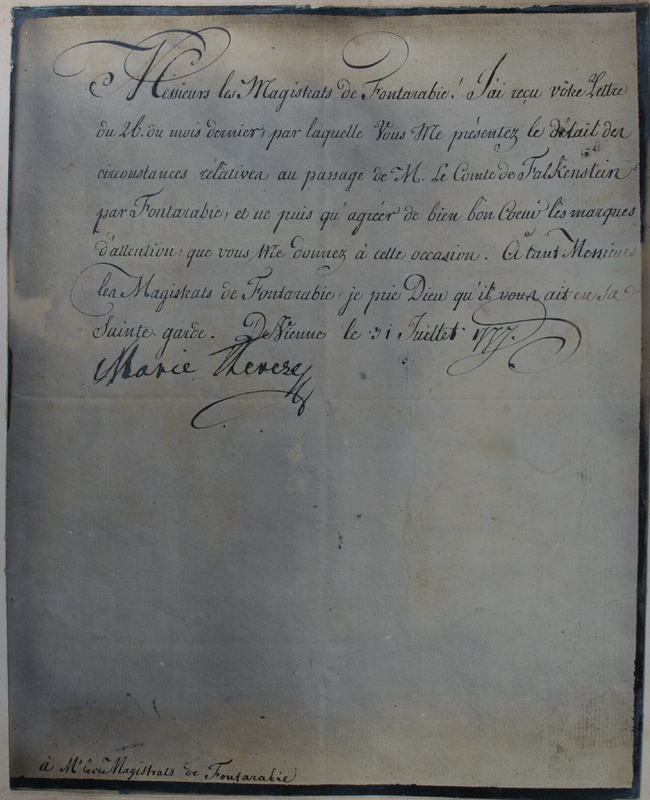 Messieurs les Magistrats de Fontarabie! J'ai reçu vôtre Lettre
du 26. du mois dernier, par laquelle Vous Me présentez le détail des
circonstances relatives au passage de M. Le Comte de Falkenstein
par Fontarabie, et ne puis qu'agréer de bien bon Coeur les marques
d'attention, que vous Me donnez à cette occasion. A tant Messieurs
les Magistrats de Fontarabie, je prie Dieu qu'il vous ait en sa
Sainte garde. De Vienne le 31 Juillet 1777.
Marie Therese
à Mrs les Magistrats de Fontarabie